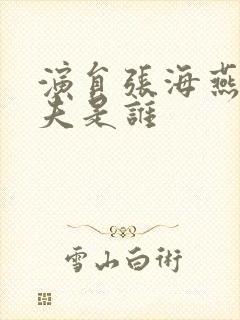 演員張海燕
夫是誰
雪山白術